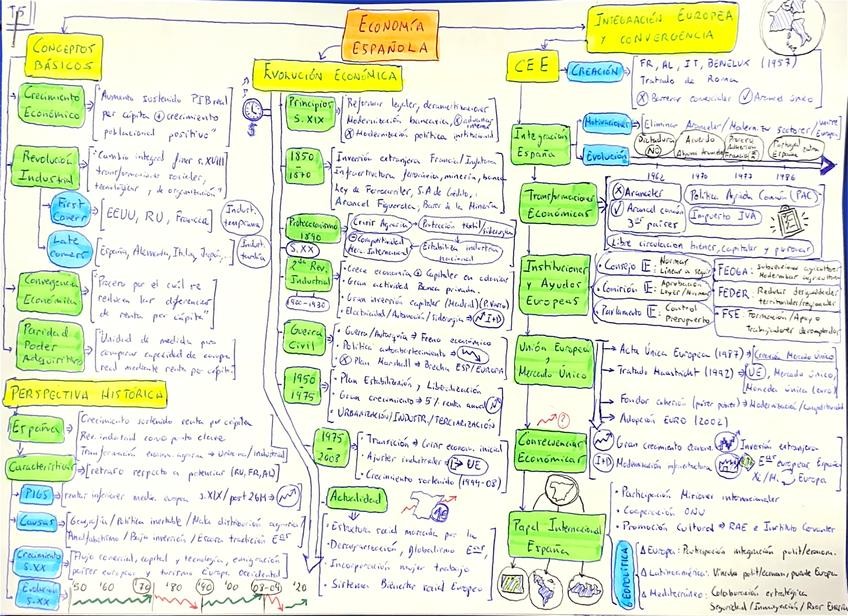 T5
ECONOMÍA
ESPAÑOLA
CONCEPTOS
BÁSICOS
Crecimiento
Económico
"Aumento sostenido PIB real
per cápita + crecimiento
poblacional positivo"
Revolución
Industrial
"Cambio integral fines s.XVIII
transformaciones sociales,
tecnológicas, de organización"
First
Comers
EEUU, RU, Francia
Indust.
temprana
Late
comers
España, Alemania, Italia, Japón,
Indust.
tardía
Convergencia
Económica
"Proceso por el cual se
reducen las diferencias
de renta per cápita"
Paridad
Poder
Adquisitivo
"Unidad de medida para
comparar capacidad de compra
real mediante renta per cápita"
PERSPECTIVA HISTÓRICA
España
Crecimiento sostenido renta per cápita
Rev. industrial como punto clave
Transformación economía agraria → Urbana/industrial
Características
retraso respecto a potencias (RU, FR, AL)
PIGS
rentas inferiores media europea s.XIX/post 2GM →
Causas
Geografía/Política inestable/Mala distribución agraria
Analfabetismo/Baja inversión/Escasa tradición
Crecimiento
S.XX
Flujo comercial, capital y tecnología, emigración
países europeos y turismo Europa occidental
Evolución
S.XX
'50 '60 '70 '80 '90 '00 08-09 '20
EVOLUCIÓN ECONÓMICA
Principios
S. XIX
Reformas legales, desamortizaciones
Modernización bancaria,
Modernización política institucional
1850
-
1870
Inversión extranjera Francia/Inglaterra
Infraestructura ferroviaria, minería, banca
Ley de Ferrocarriles, S.A de Crédito,
Arancel Figuerola, Bases de la Minería
Proteccionismo
1890
S. XX
Crisis Agraria
Protección textil/siderurgia
Competitividad
Merc. Internacional
Estabiliza industria
nacional
2ª Rev.
Industrial
1900-1930
Crece economía
Gran actividad Banca privada.
Gran inversión capitales (Madrid/P.Vasco)
Electricidad/Automoción/Siderurgia → I+D
Guerra
Civil
Guerra/Autarquía → Freno económico
Política autoabastecimiento →
Plan Marshall → Brecha ESP/EUROPA
1950
-
1975
Plan Estabilización, Liberalización
Gran crecimiento → 5% renta anual
URBANIZACIÓN/INDUSTR/TERCIALIZACIÓN
1975
-
2008
Transición → Crisis económica inicial
Ajustes industriales → UE
Crecimiento sostenido (1994-08)
Actualidad
Estructura social marcada por la
Desruralización, globalismo
Incorporación mujer trabajo
Sistema Bienestar social Europeo
INTEGRACIÓN EUROPEA
Y CONVERGENCIA
CEE
CREACIÓN
FR, AL, IT, BENELUX (1957)
Tratado de Roma
Barreras comerciales
Arancel único
Integración
España
Motivaciones
Eliminar Aranceles/Modernizar sectores
Evolución
Dictadura
NO
Acuerdo
Portugal
España
1962 1970 1977 1986
Transformaciones
Económicas
Aranceles
Arancel común
3ºs países
Política Agrícola Común (PAC)
Impuesto IVA
Libre circulación bienes, capitales y personas
Instituciones
y Ayudas
Europeas
Consejo E: Normas
Líneas a seguir
Comisión E: Aprobación
Leyes/Normas
Parlamento E: Control
Presupuesto
FEOGA: Subvenciones agricultores
Modernizar agricultura
FEDER: Reducir desigualdades
territoriales/regionales
FSE: Formación/Apoyo
Trabajadores desempleados
Unión Europea
y Mercado Único
Acta Única Europea (1987) → Creación Mercado Único
Tratado Maastricht (1992) → UE, Mercado Único,
Moneda única (euro)
Fondos cohesión (países pobres) → Modernización/Competitividad
Adopción EURO (2002)
Consecuencias
Económicas
Gran crecimiento
Inversión extranjera
I+D
Modernización infraestructura
europeas España
Europa
Papel Internacional
España
Participación Misiones internacionales
Cooperación ONU
Promoción Cultural → RAE e Instituto Cervantes
GEOPOLÍTICA
Europa: Participación integración polít/económ.
Latinoamérica: Vínculos polít/económ, puente Europa
Mediterráneo: Colaboración estratégica
Seguridad/Inmigración/Rec. Energ.